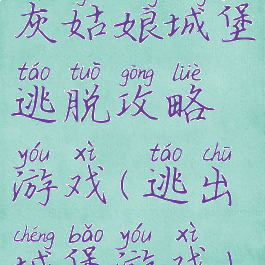 灰姑娘城堡
táo tuō gōng lüè
逃脱攻略
yóu xì táo chū
游戏(逃出
chéng bǎo yóu xì
城堡游戏)